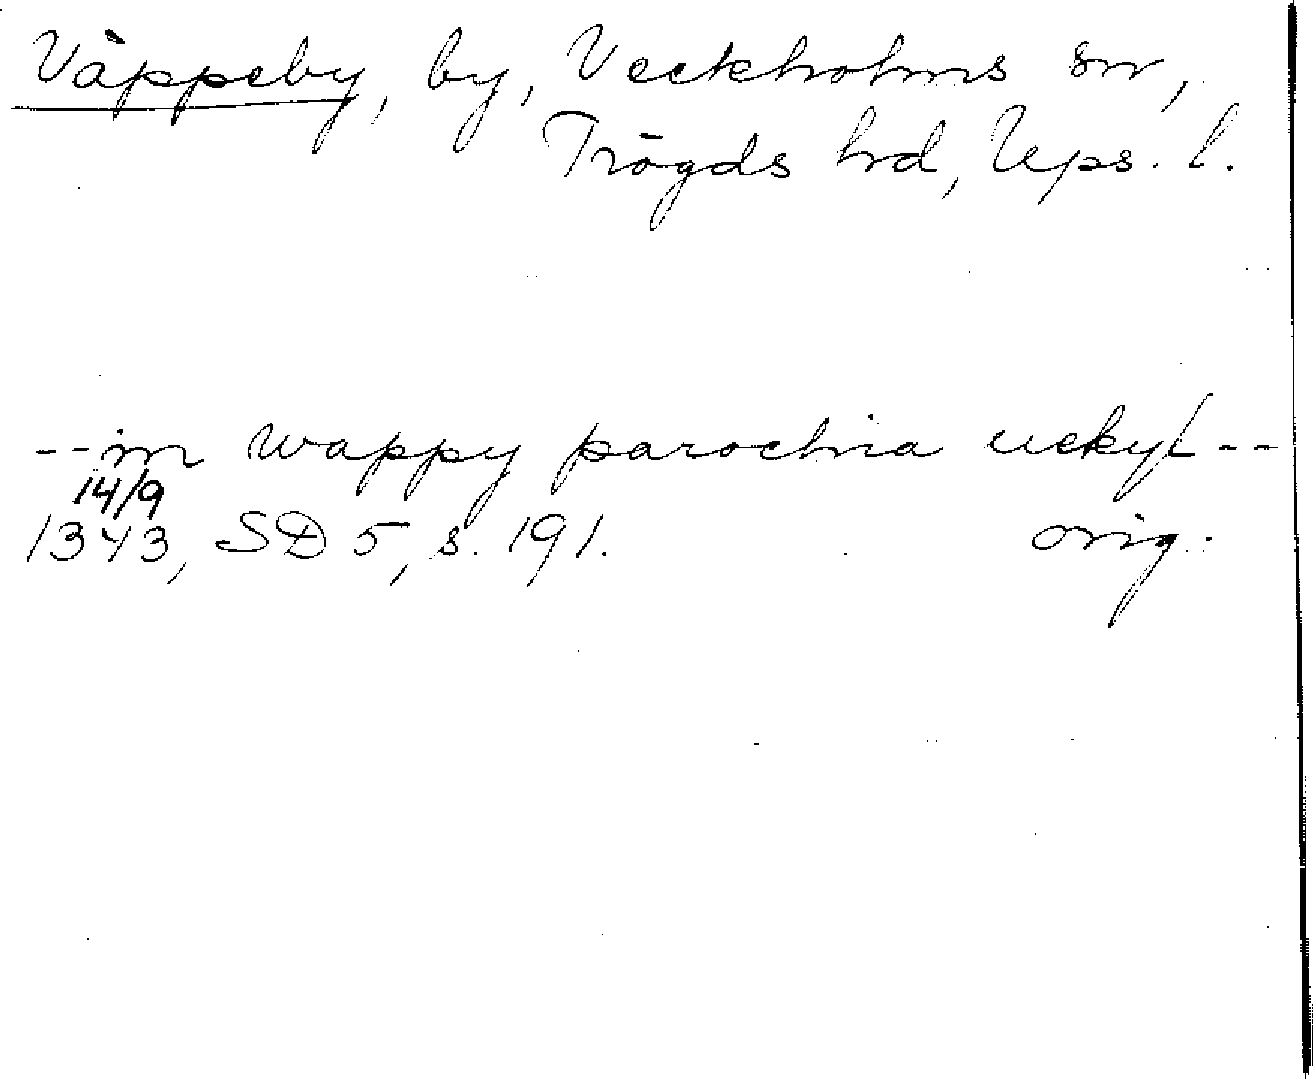 Väppeby, by, Veckholms sn,
Trögds hd, Ups. l.
--in wappy parochia uckyl--
14/9
1343, SD 5, s. 191. orig.